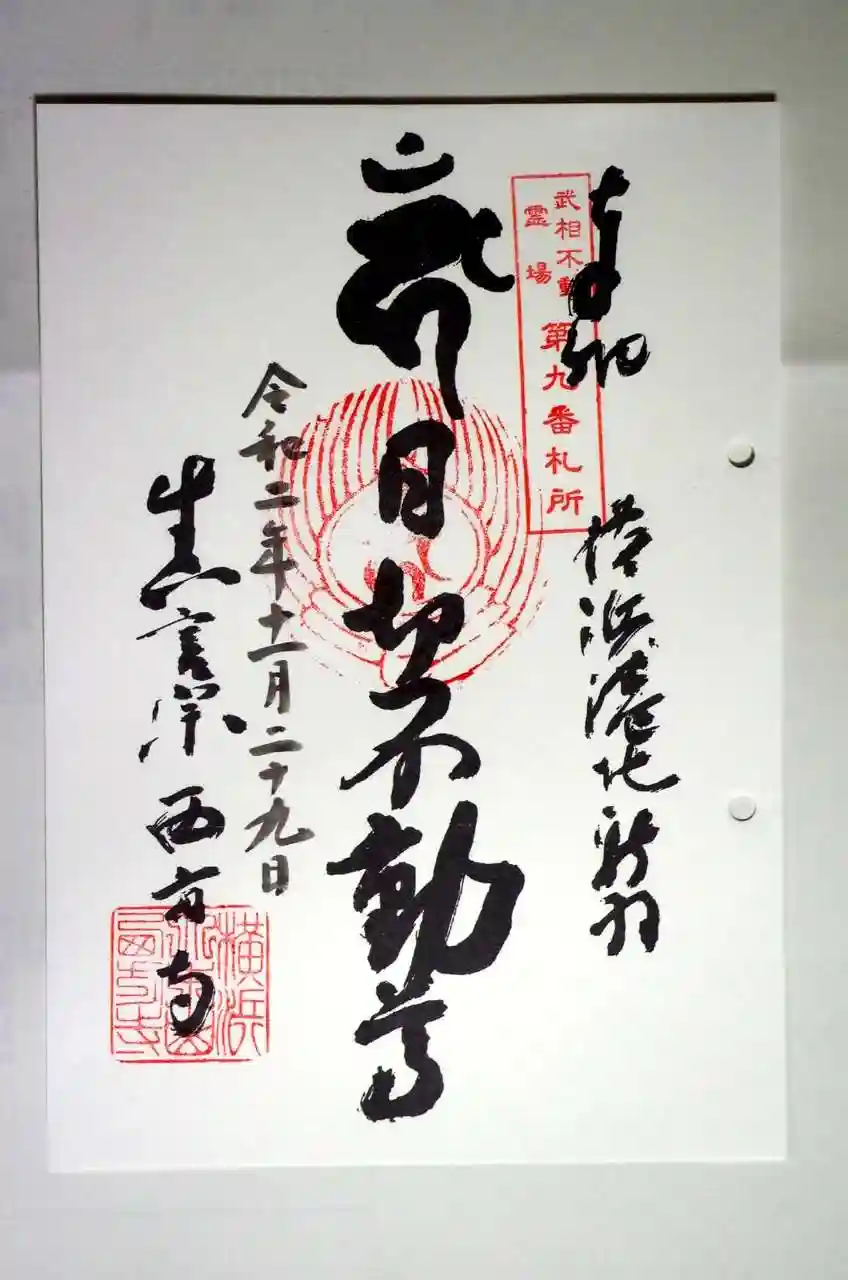 奉拝
横浜港北新羽
武相不動
霊場
第九番札所
日切不動尊
令和二年十一月二十九日
真言宗 西方寺
横浜
西方寺